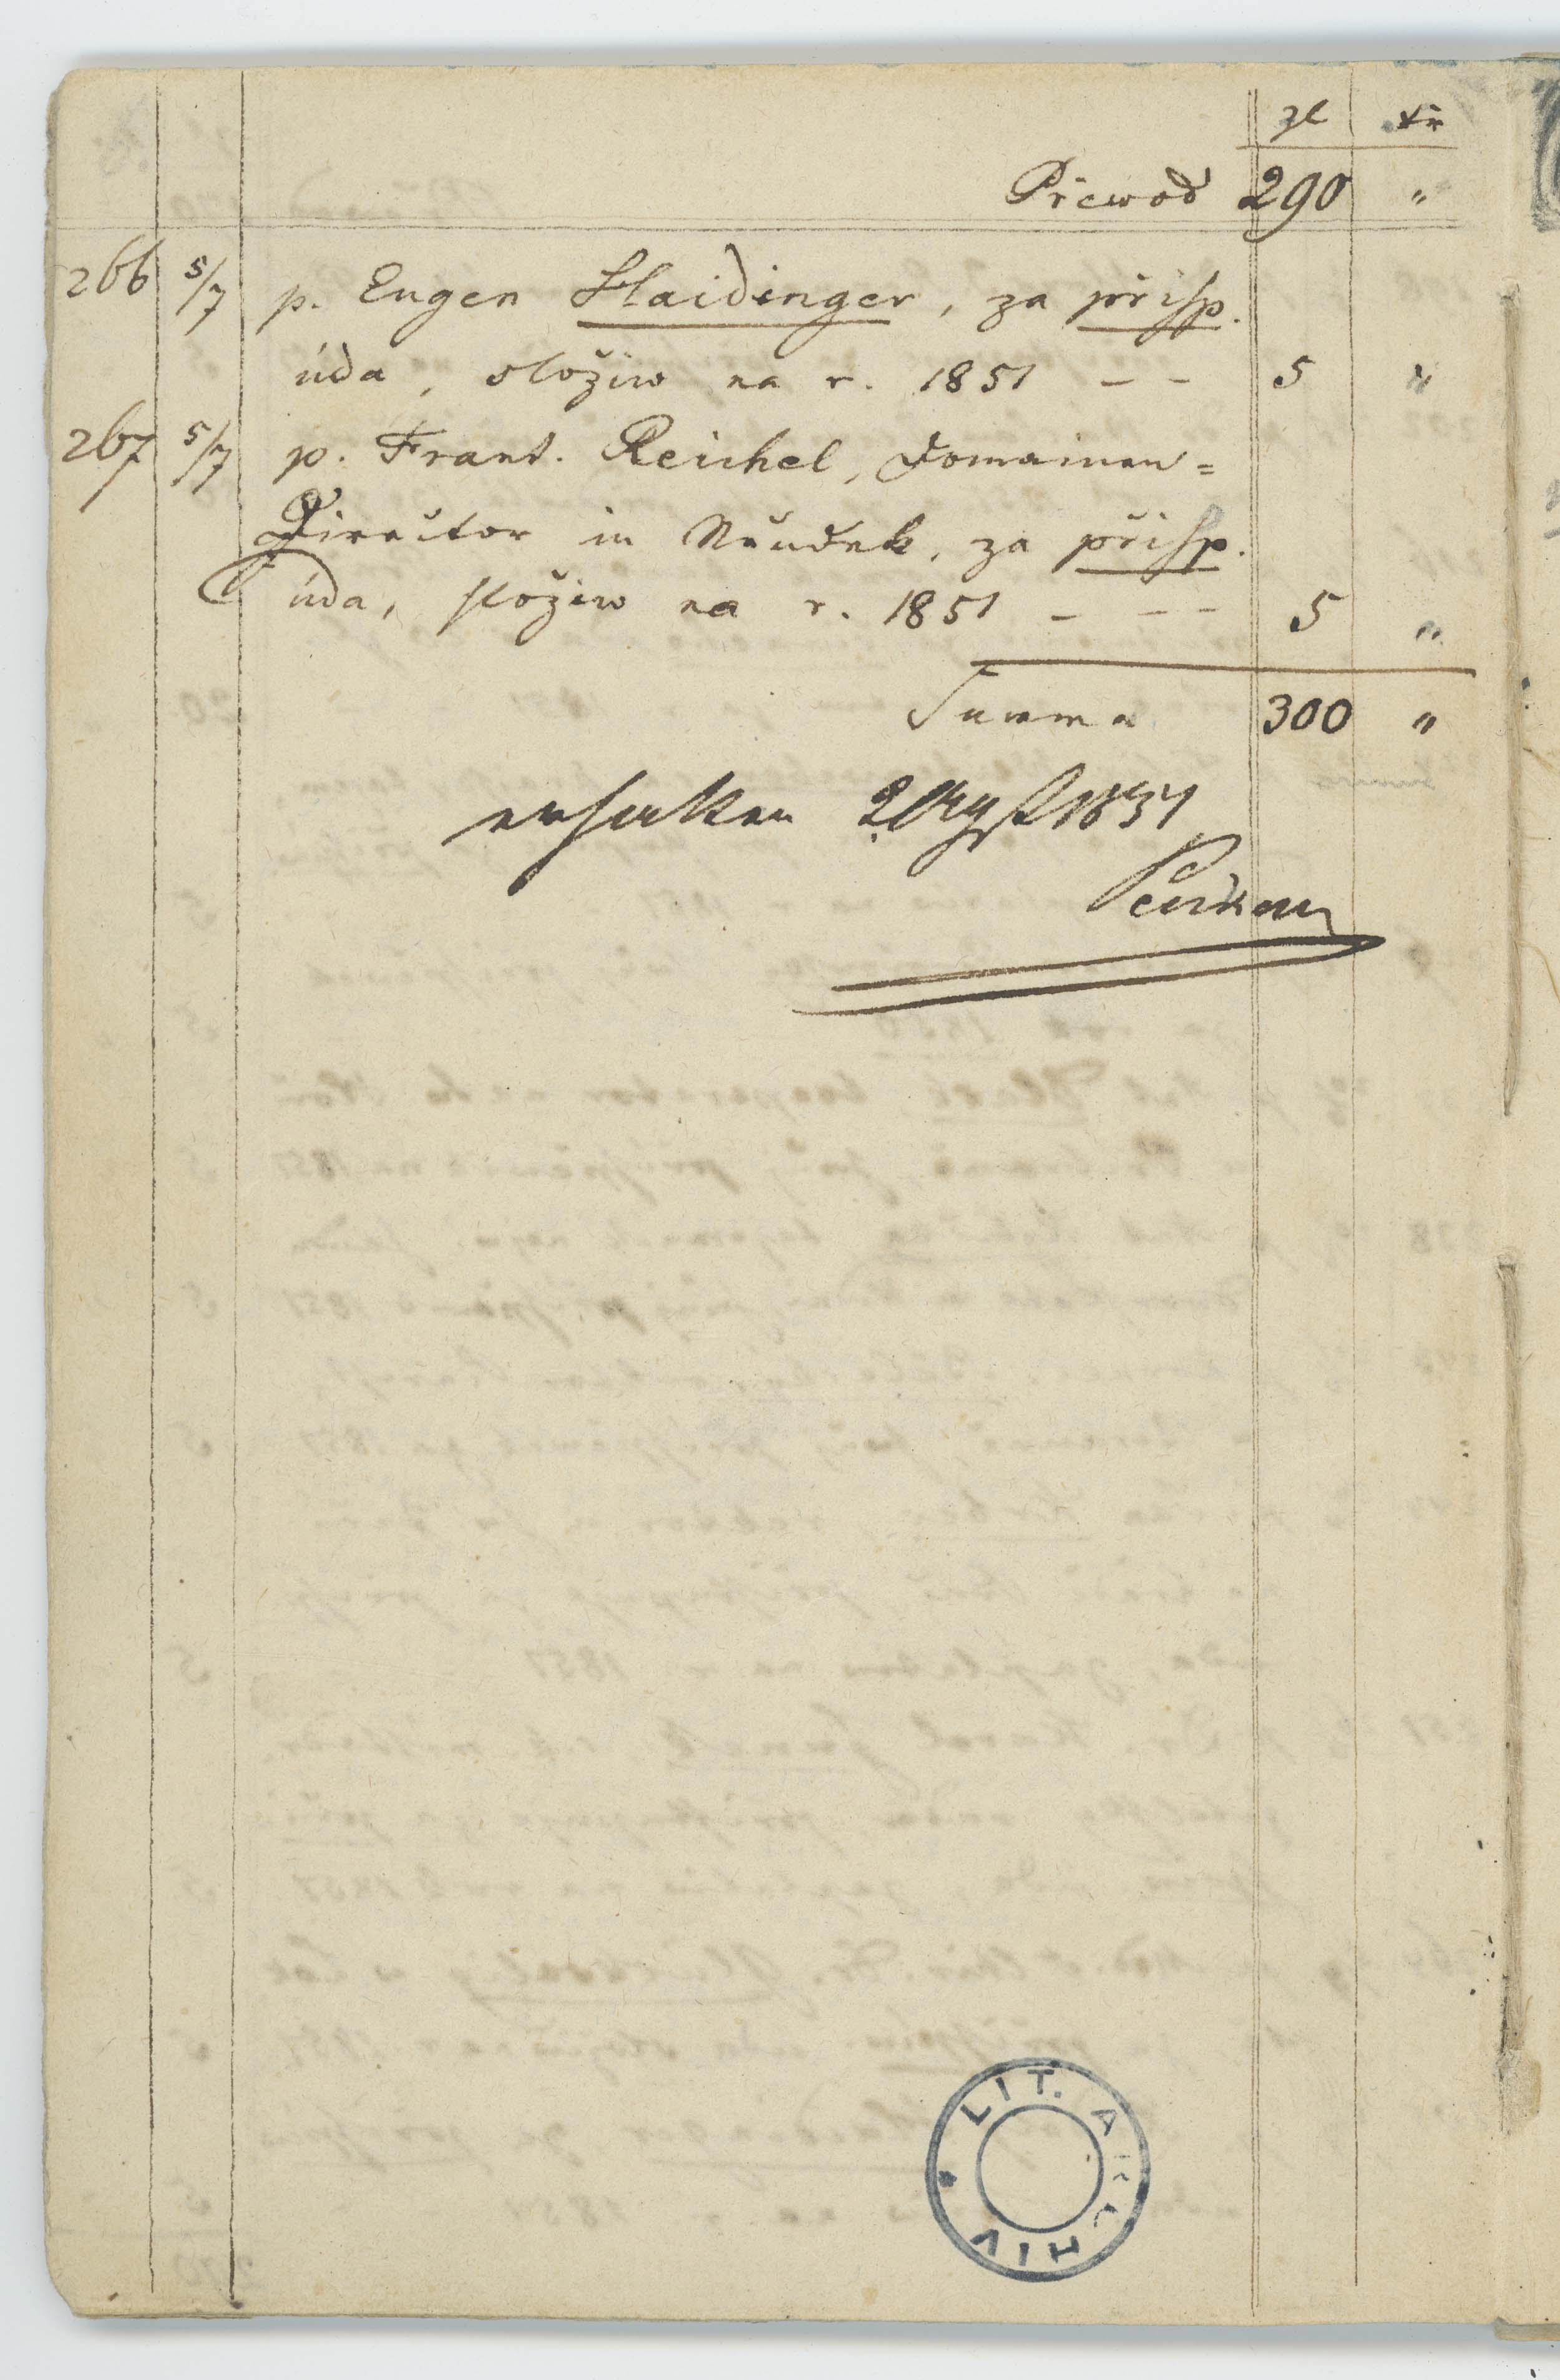 zl kr
Přewod 290 "
266 5/7 p. Eugen Haidinger, za přisp.
úda, složiw na r. 1851 – – 5 "
267 5/7 p. Frant. Reichel, Domainen=
Director in Neudek, za přisp.
úda, složiw na r. 1851 – – – 5 "
Summa 300 "
erhalten 2 1851
LIT. ARCHIV